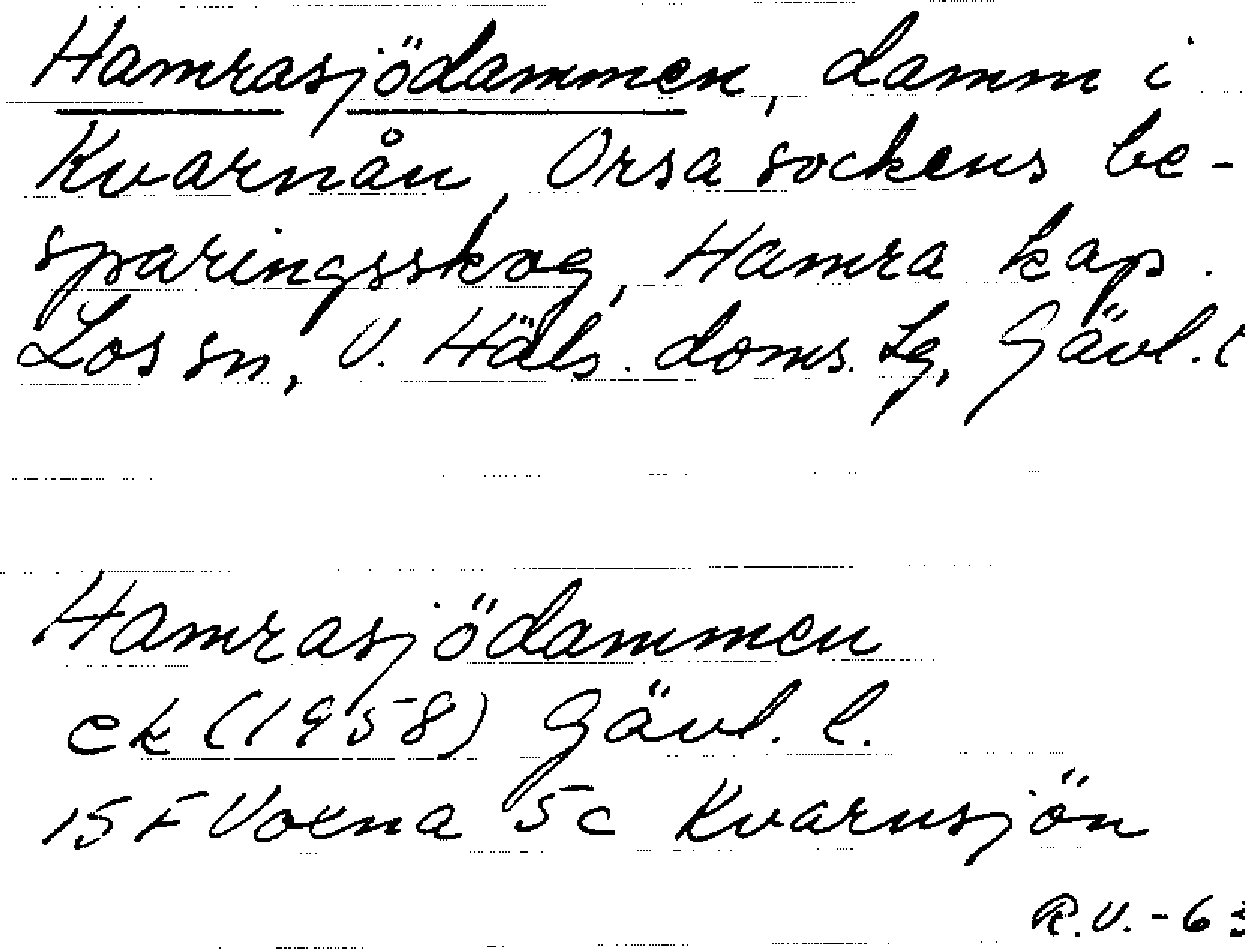 Hamrasjödammen, damm i
Kvarnån, Orsa sockens be-
sparingsskog, Hamra kap.
Los sn, V. Häls. doms. lg, Gävl. l
Hamrasjödammen
ek (1958) Gävl. l.
15 F Voxna 5c Kvarnsjön
R.V. - 63